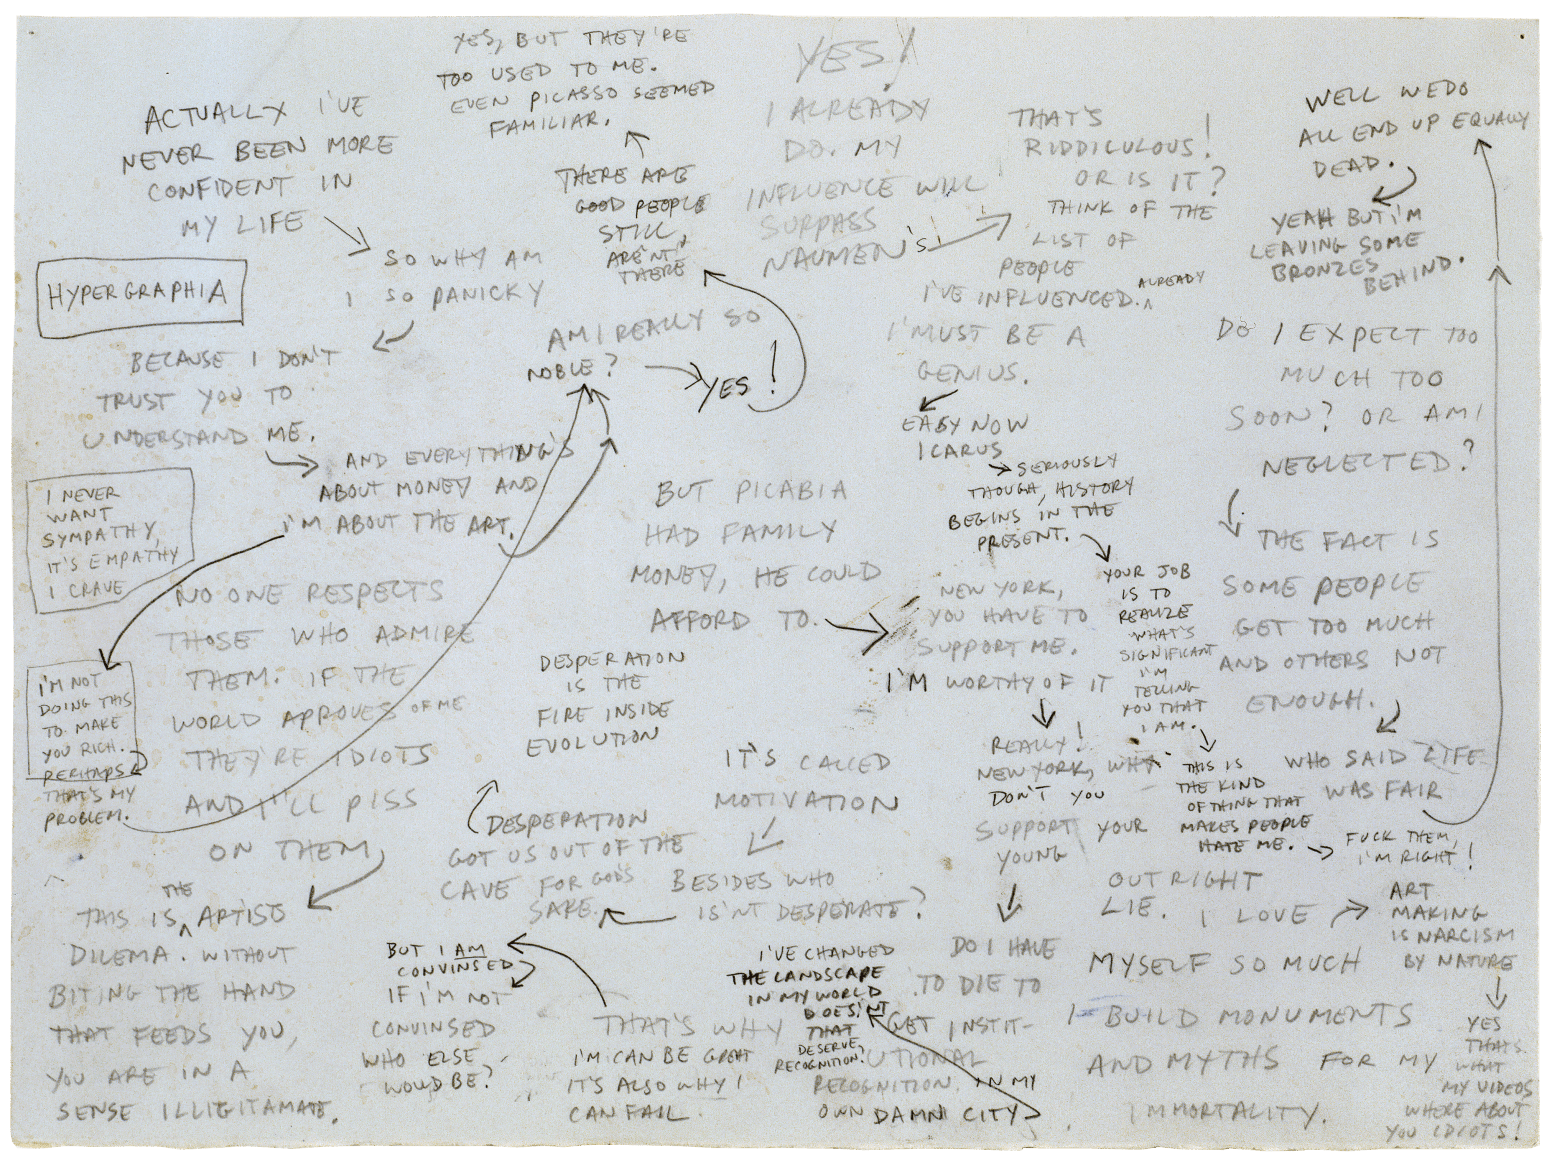 ACTUALLY I'VE
NEVER BEEN MORE
CONFIDENT IN
MY LIFE
SO WHY AM
I SO PANICKY
HYPERGRAPHIA
BECAUSE I DON'T
TRUST YOU TO
UNDERSTAND ME.
AND EVERYTHING'S
ABOUT MONEY AND
I'M ABOUT THE ART.
I NEVER
WANT
SYMPATHY,
IT'S EMPATHY
I CRAVE
I'M NOT
DOING THIS
TO MAKE
YOU RICH.
PERHAPS
THAT'S MY
PROBLEM.
NO ONE RESPECTS
THOSE WHO ADMIRE
THEM. IF THE
WORLD APPROVES OF ME
THEY'RE IDIOTS
AND I'LL PISS
ON THEM
THIS IS THE ARTISTS
DILEMA. WITHOUT
BITING THE HAND
THAT FEEDS YOU,
YOU ARE IN A
SENSE ILLIGITAMATE.
YES, BUT THEY'RE
TOO USED TO ME.
EVEN PICASSO SEEMED
FAMILIAR.
THERE ARE
GOOD PEOPLE
STILL,
ARE'NT
THERE
AM I REALLY SO
NOBLE?
YES!
YES!
I ALREADY
DO. MY
INFLUENCE WILL
SURPASS
NAUMEN'S
THAT'S
RIDDICULOUS!
OR IS IT?
THINK OF THE
LIST OF
PEOPLE
I'VE INFLUENCED. ALREADY
I'MUST BE A
GENIUS.
EASY NOW
ICARUS
SERIOUSLY
THOUGH, HISTORY
BEGINS IN THE
PRESENT.
YOUR JOB
IS TO
REALIZE
WHAT'S
SIGNIFICANT
I'M
TELLING
YOU THAT
I AM.
THIS IS
THE KIND
OF THING THAT
MAKES PEOPLE
HATE ME.
FUCK THEM,
I'M RIGHT!
BUT PICABIA
HAD FAMILY
MONEY, HE COULD
AFFORD TO.
NEW YORK,
YOU HAVE TO
SUPPORT ME.
I'M WORTHY OF IT
REALLY!
NEW YORK, WHY
DON'T YOU
SUPPORT YOUR
YOUNG
DO I HAVE
TO DIE TO
GET INSTIT-
UTIONAL
RECOGNITION. IN MY
OWN DAMN CITY
I'VE CHANGED
THE LANDSCAPE
IN MY WORLD
DOES'NT
THAT
DESERVE
RECOGNITION?
DESPERATION
IS THE
FIRE INSIDE
EVOLUTION
IT'S CALLED
MOTIVATION
BESIDES WHO
IS'NT DESPERATE?
DESPERATION
GOT US OUT OF THE
CAVE FOR GOD'S
SAKE.
THAT'S WHY
I'M CAN BE GREAT
IT'S ALSO WHY I
CAN FAIL.
BUT I AM
CONVINSED
IF I'M NOT
CONVINSED
WHO ELSE
WOULD BE?
DO I EXPECT TOO
MUCH TOO
SOON? OR AM I
NEGLECTED?
THE FACT IS
SOME PEOPLE
GET TOO MUCH
AND OTHERS NOT
ENOUGH.
WHO SAID LIFE
WAS FAIR
WELL WE DO
ALL END UP EQUALLY
DEAD.
YEAH BUT I'M
LEAVING SOME
BRONZES
BEHIND.
OUTRIGHT
LIE. I LOVE
MYSELF SO MUCH
I BUILD MONUMENTS
AND MYTHS FOR MY
IMMORTALITY.
ART
MAKING
IS NARCISM
BY NATURE
YES
THATS
WHAT
MY VIDEOS
WHERE ABOUT
YOU IDIOTS!